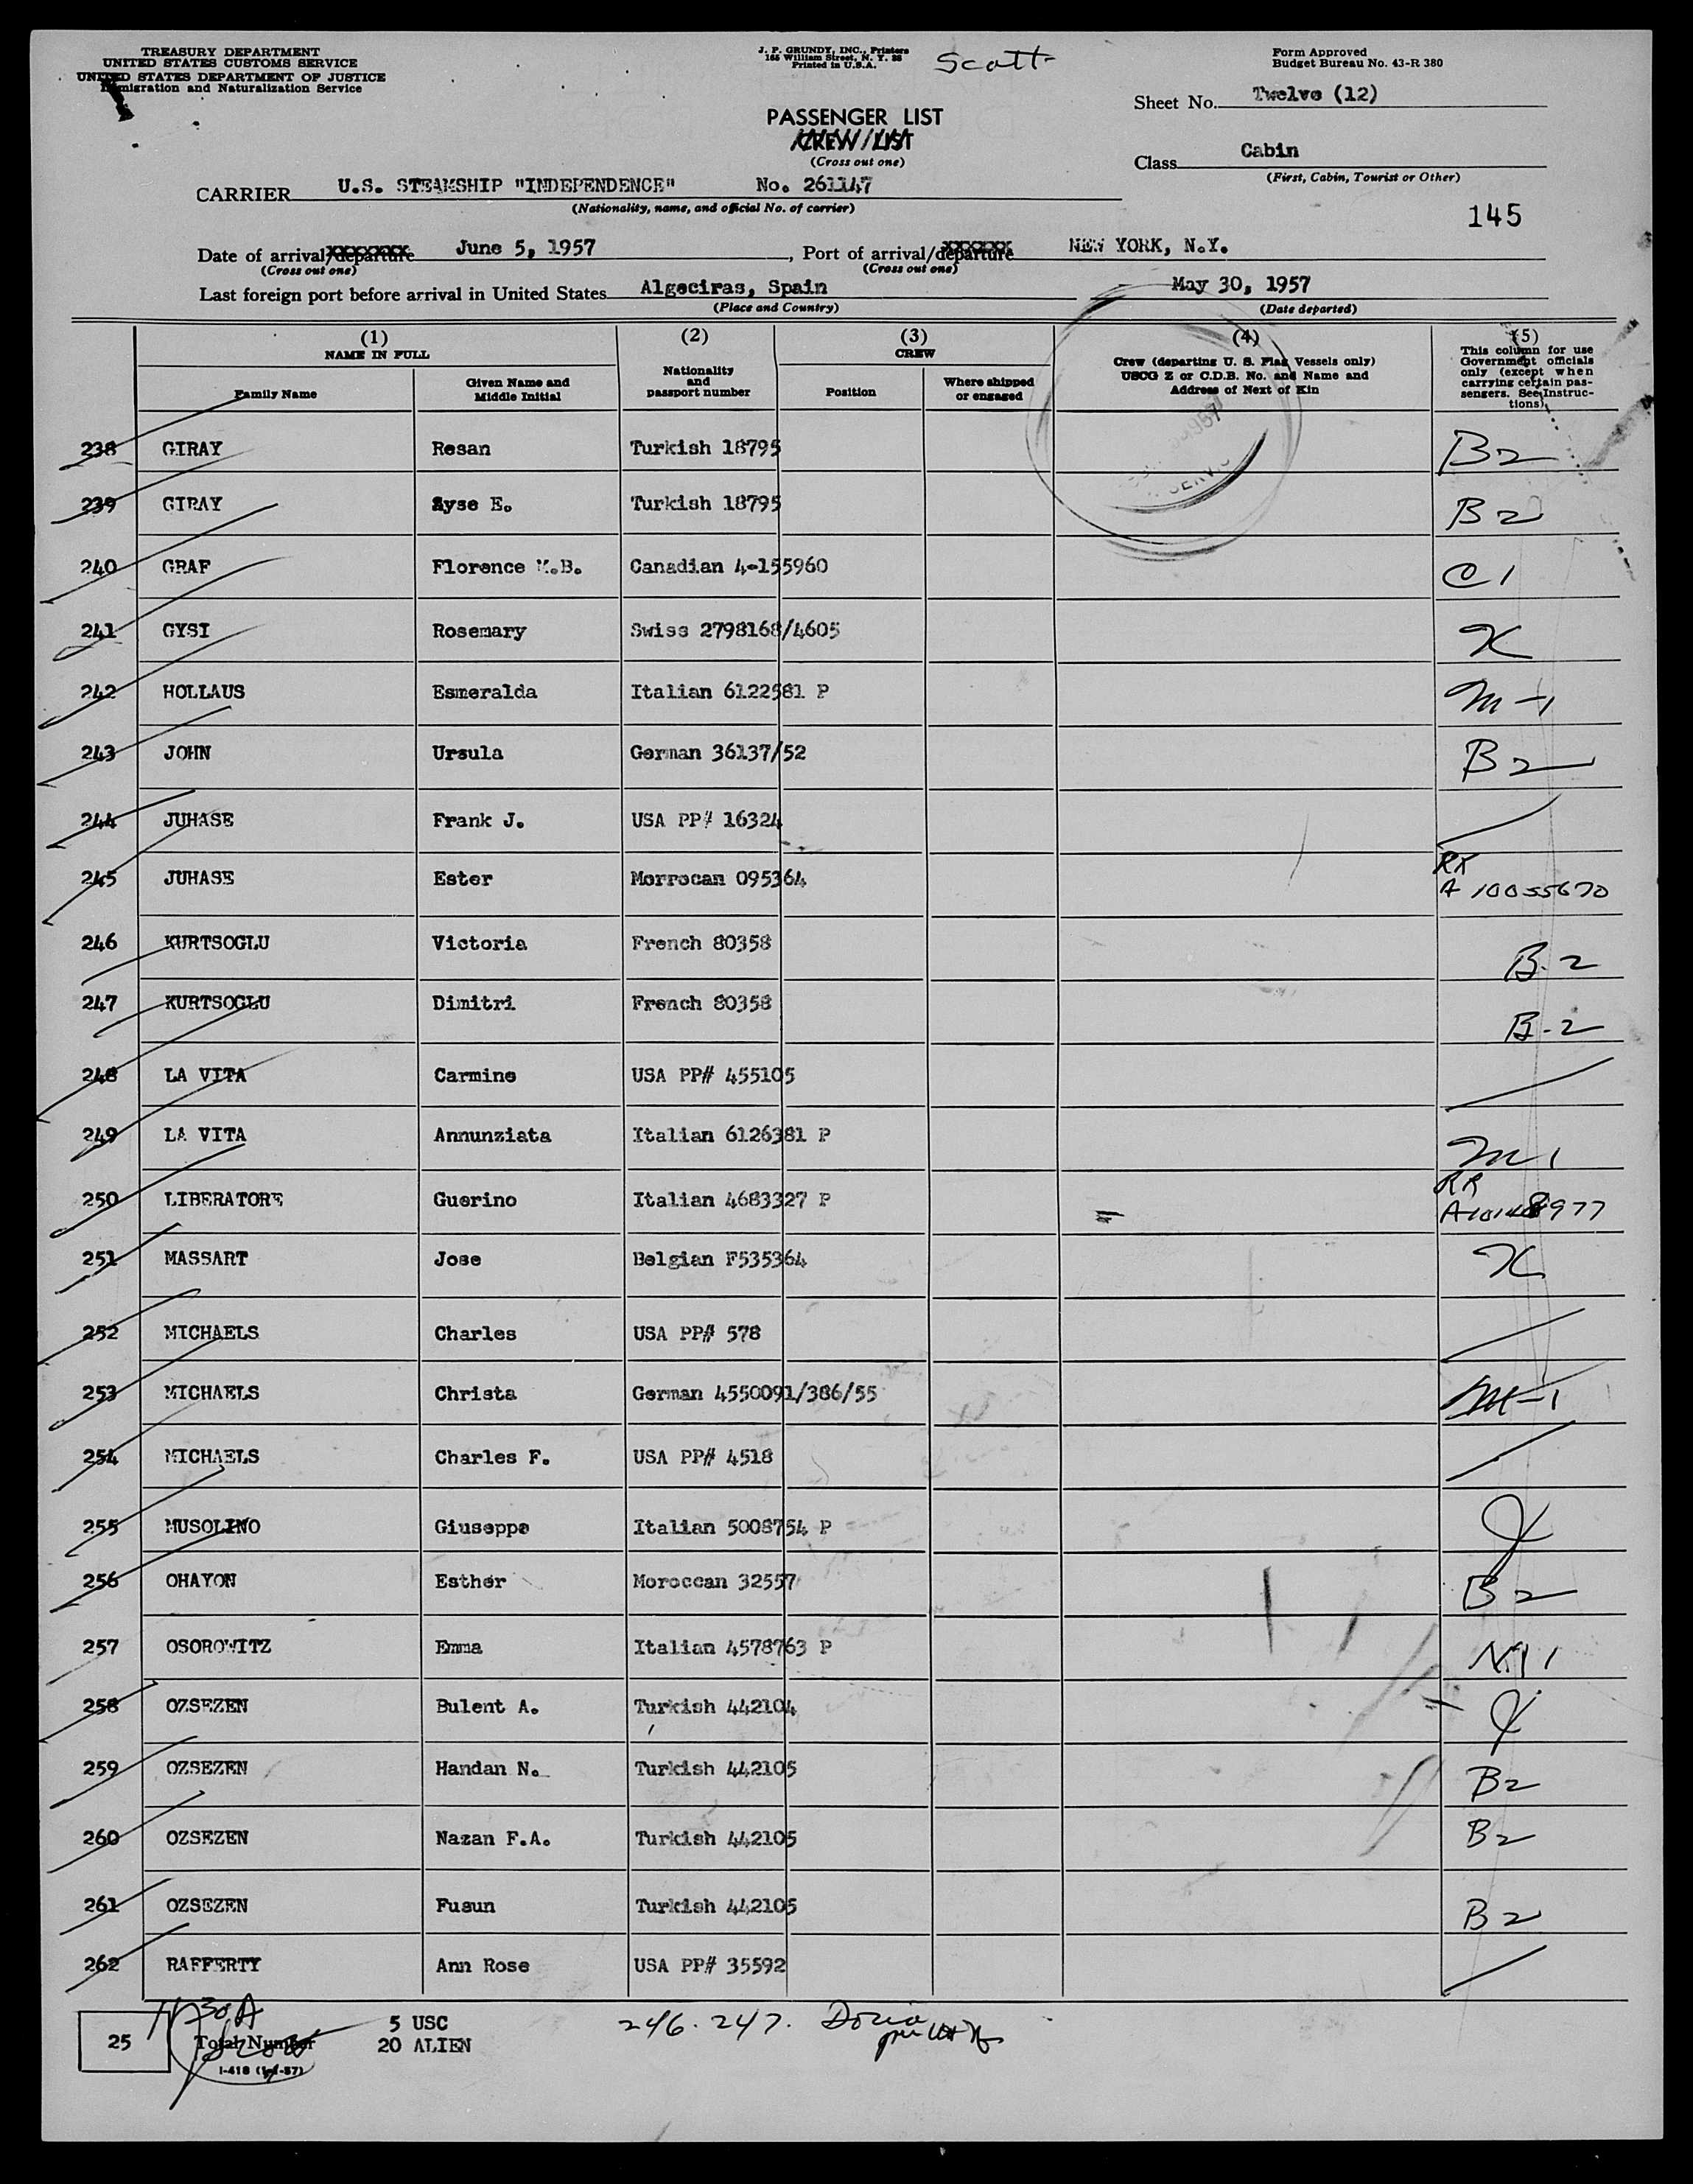 TREASURY DEPARTMENT
UNITED STATES CUSTOMS SERVICE
UNITED STATES DEPARTMENT OF JUSTICE
Immigration and Naturalization Service
J. P. GRUNDY, INC., Printers
165 William Street, N. Y. 38
Printed in U.S.A.
Scott
Form Approved
Budget Bureau No. 43-R 380
Sheet No. Twelve (12)
PASSENGER LIST
CREW LIST
(Cross out one)
Class Cabin
(First, Cabin, Tourist or Other)
CARRIER U.S. STEAMSHIP "INDEPENDENCE" No. 261147
(Nationality, name, and official No. of carrier)
145
Date of arrival/departure June 5, 1957, Port of arrival/departure NEW YORK, N.Y.
(Cross out one) (Cross out one)
Last foreign port before arrival in United States Algeciras, Spain May 30, 1957
(Place and Country) (Date departed)
(1) NAME IN FULL
Family Name
Given Name and Middle Initial
(2) Nationality and passport number
(3) CREW
Position
Where shipped or engaged
(4) Crew (departing U. S. Flag Vessels only)
USCG Z or C.D.B. No. and Name and
Address of Next of Kin
(5) This column for use
Government officials
only (except when
carrying certain pas-
sengers. See Instruc-
tions)
238 GIRAY Resan Turkish 18795 B2
239 GIRAY Ayse E. Turkish 18795 B2
240 GRAF Florence M.B. Canadian 4-155960 C1
241 GYSI Rosemary Swiss 2798168/4605 X
242 HOLLAUS Esmeralda Italian 6122581 P M-1
243 JOHN Ursula German 36137/52 B2
244 JUHASE Frank J. USA PP# 16324
245 JUHASE Ester Morrocan 095364 RX A 10055670
246 KURTSOGLU Victoria French 80358 B-2
247 KURTSOGLU Dimitri French 80358 B-2
248 LA VITA Carmine USA PP# 455105
249 LA VITA Annunziata Italian 6126381 P M1
250 LIBERATORE Guerino Italian 4683327 P RR
251 MASSART Jose Belgian F535364 X
252 MICHAELS Charles USA PP# 578
253 MICHAELS Christa German 4550091/386/55 M-1
254 MICHAELS Charles F. USA PP# 4518
255 MUSOLINO Giuseppe Italian 5008754 P
256 OHAYON Esther Moroccan 32557 B2
257 OSOROWITZ Emma Italian 4578763 P M1
258 OZSEZEN Bulent A. Turkish 442104
259 OZSEZEN Handan N. Turkish 442105 B2
260 OZSEZEN Nazan F.A. Turkish 442105 B2
261 OZSEZEN Fusun Turkish 442105 B2
262 RAFFERTY Ann Rose USA PP# 35592
25
Total Number
I-418
5 USC
20 ALIEN
246. 247.